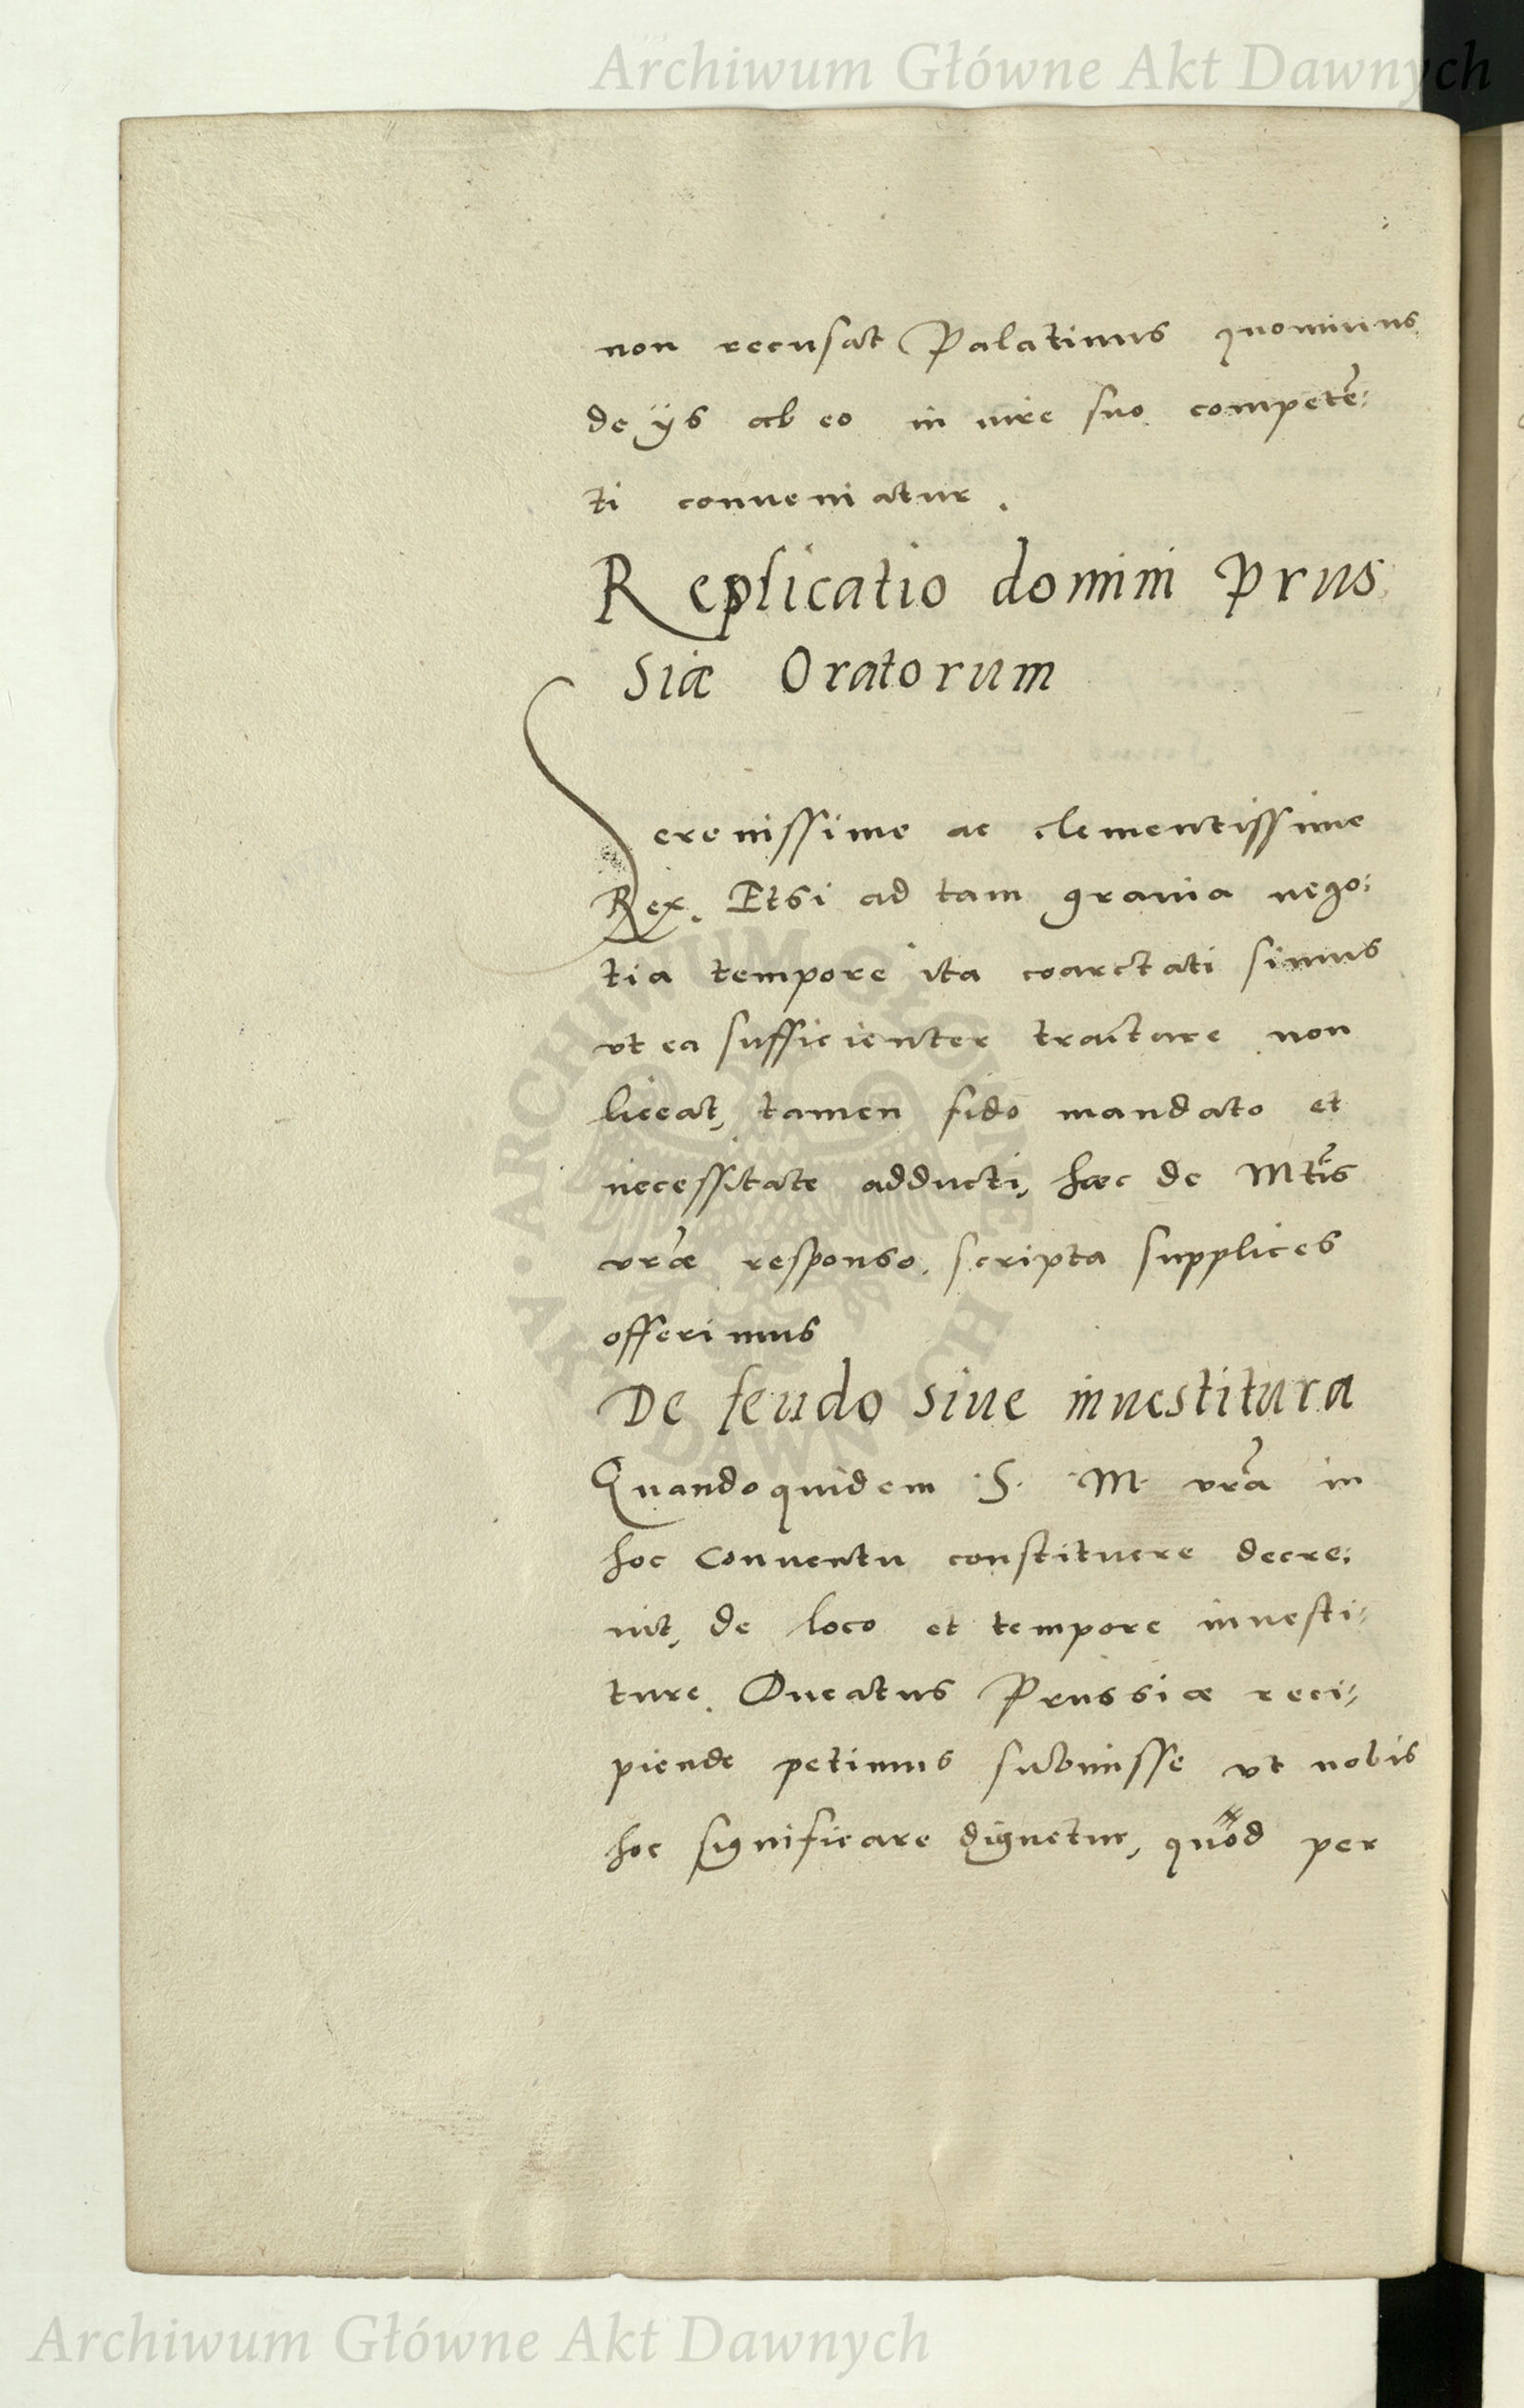 Archiwum Główne Akt Dawnych
non recusat Palatinus quominus
de ijs ab eo in iure suo competẽ:
ti conueniatur.
Replicatio domini Prus
siæ Oratorum
Serenissime ac clementissime
Rex. Etsi ad tam grauia nego:
tia tempore ita coarctati simus
vt ea sufficienter tractare non
liceat, tamen fido mandato et
necessitate adducti, hæc de Mtis
vrãe responso. scripta supplices
offerimus
De feudo siue inuestitura
Quandoquidem S. M. vrã in
hoc Conuentu constituere decre:
uit, de loco et tempore inuesti:
ture. Ducatus Prussiæ reci:
piende petimus submisse vt nobis
hoc significare dignetur, quod per
ARCHIWUM GŁÓWNE AKT DAWNYCH
Archiwum Główne Akt Dawnych